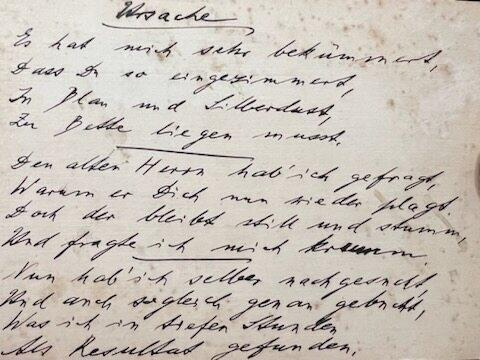 Ursache
Es hat mich sehr bekümmert,
Dass Du so eingezimmert,
In Blau und Silberdust,
Zu Bette liegen musst.
Den alten Herrn hab' ich gefragt,
Warum er Dich nun wieder plagt.
Doch der bleibt still und stumm,
Und fragte ich mich krumm.
Nun hab' ich selber nachgesucht,
Und auch sogleich genau gebucht,
Was ich in tiefen Stunden
Als Resultat gefunden.